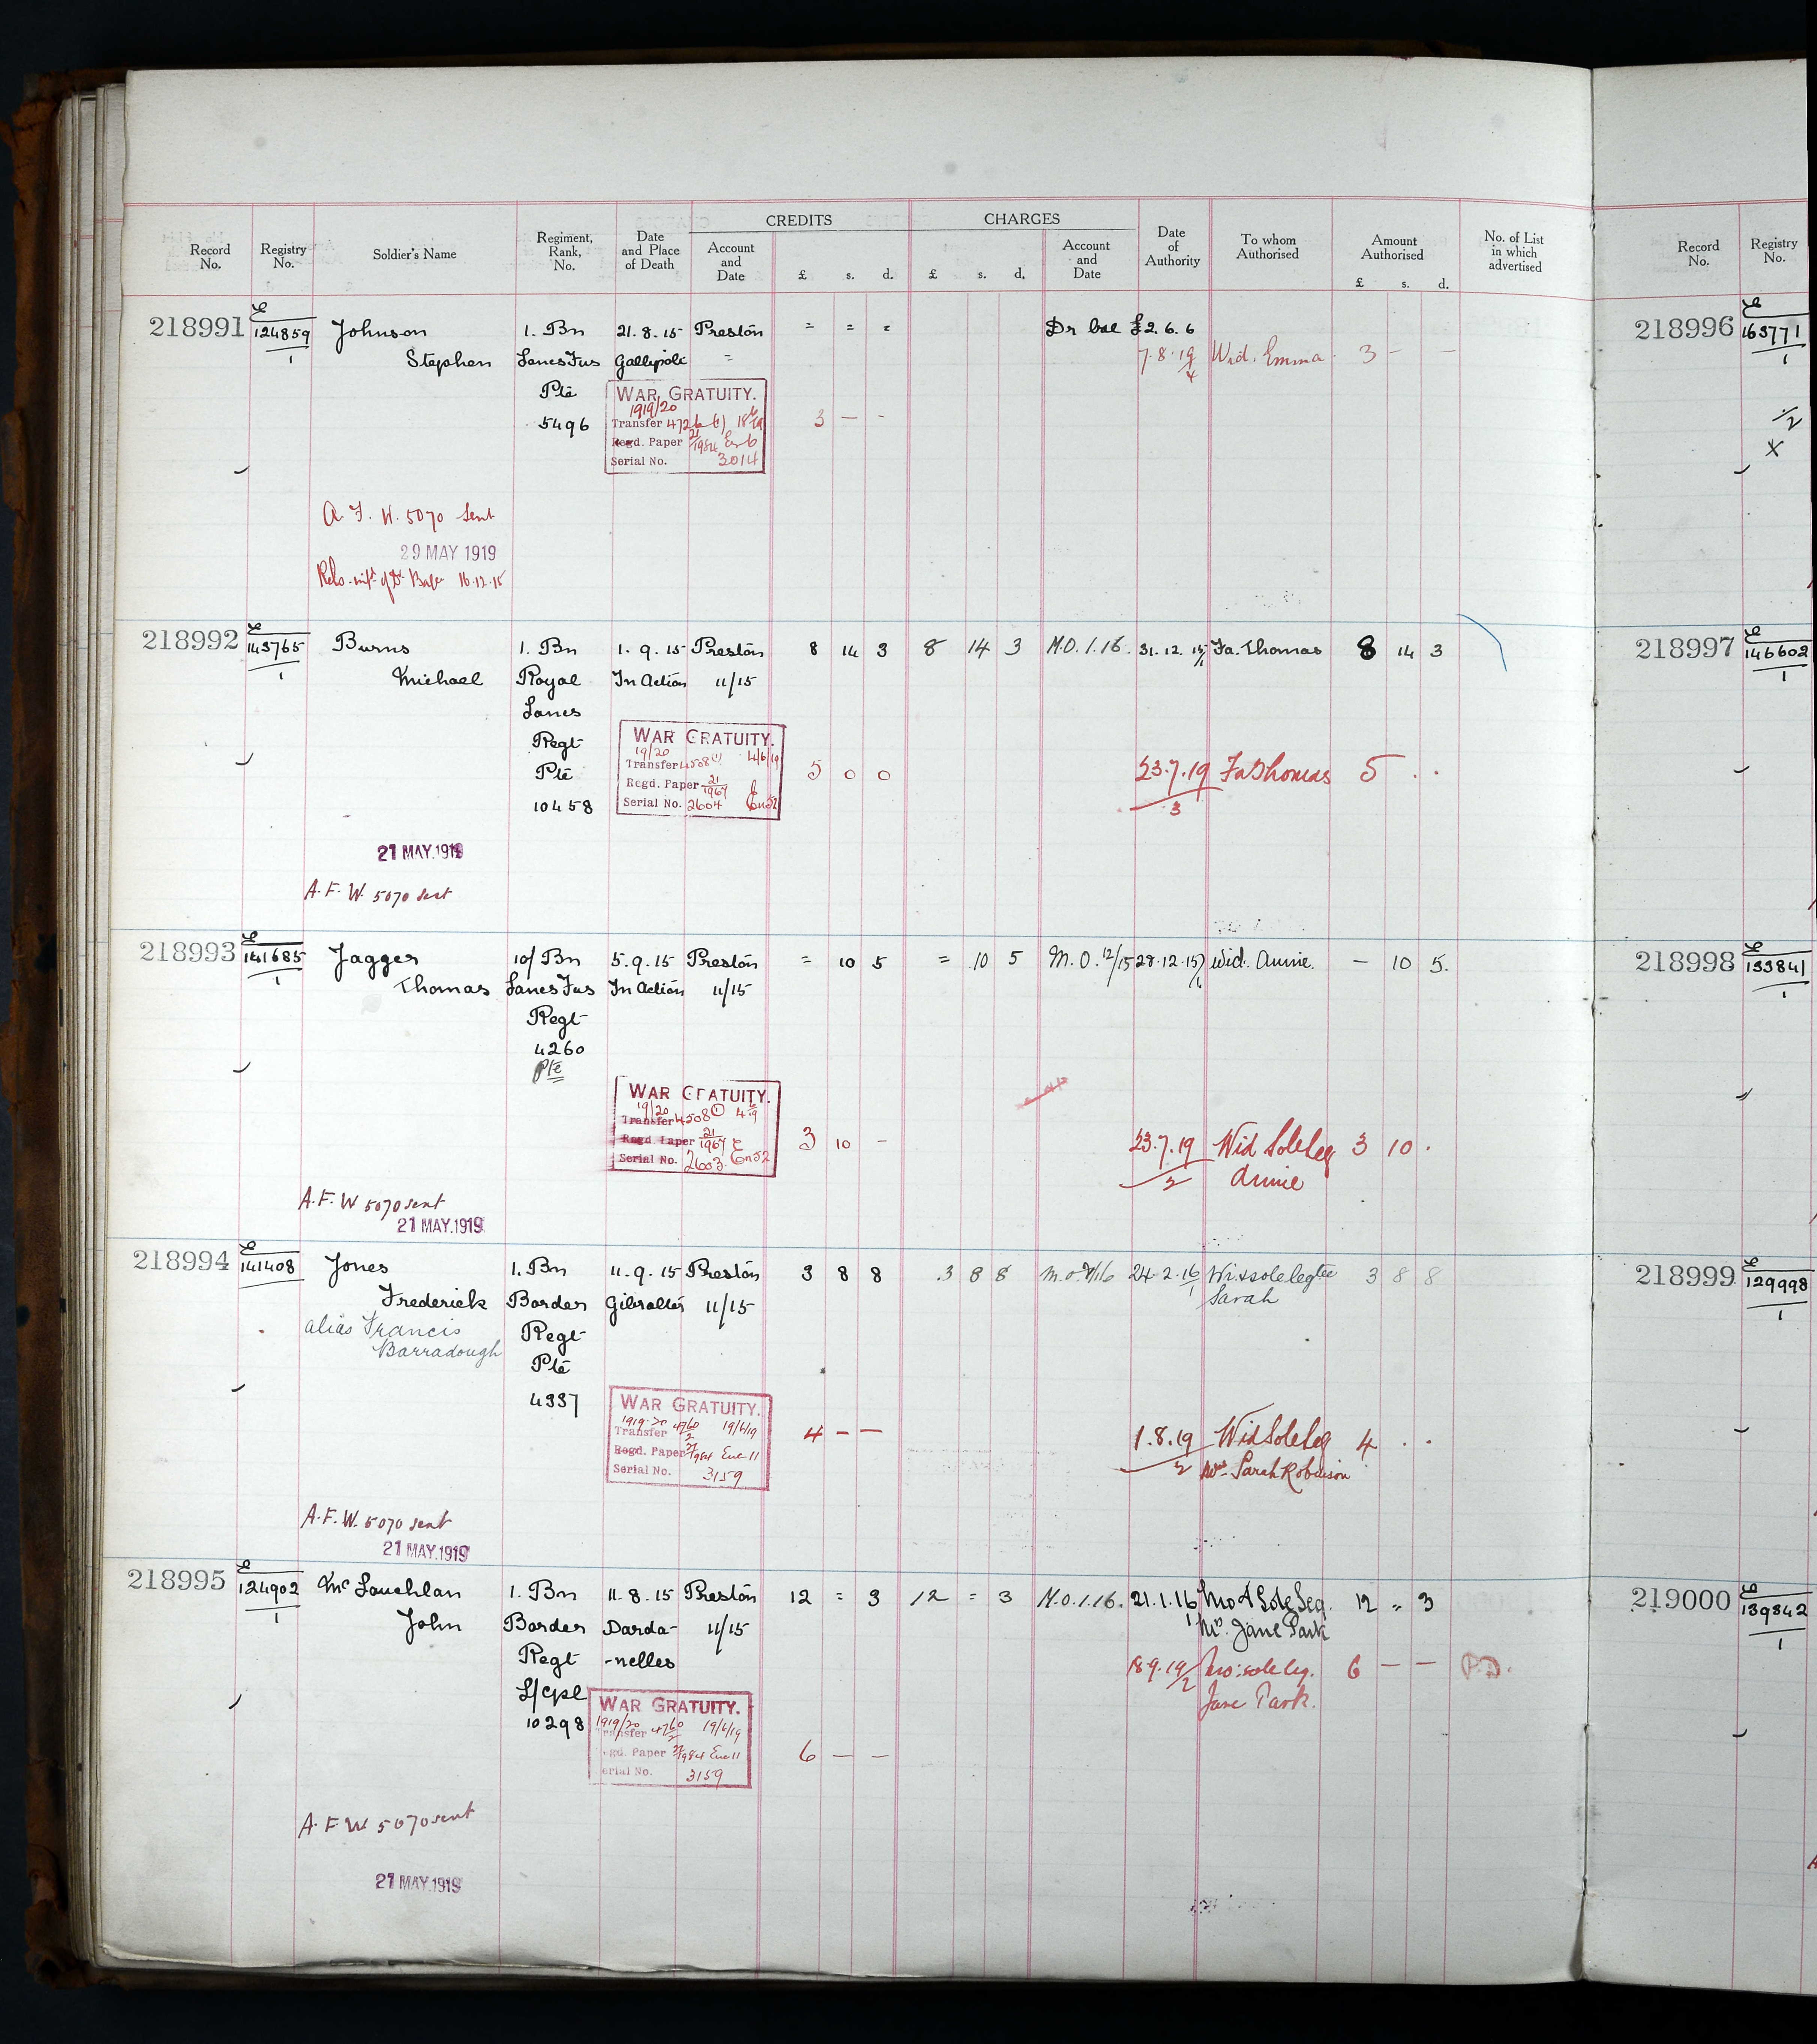 CREDITS CHARGES
Record No. Registry No. Soldier's Name Regiment, Rank, No. Date and Place of Death Account and Date £ s. d. £ s. d. Account and Date Date of Authority To whom Authorised Amount Authorised £ s. d. No. of List in which advertised Record No. Registry No.
218991 E 124859 Johnson 1. Bn 21.8.15 Preston = = = Dr bal £2.6.6
1 Stephen Lancs Fus Gallipoli = 7.8.19 Wid. Emma. 3 – –
4
Pte WAR GRATUITY.
1919/20
5496 Transfer 3 – -
Regd. Paper 21
Serial No. 3014
A. F. W. 5070 Sent
29 MAY 1919
16.12.15
218992 E 143765 Burns 1. Bn 1.9.15 Preston 8 14 3 8 14 3 M.O. 1.16. 31.12.15 Fa. Thomas 8 14 3
1 Michael Royal In Action 11/15
Lancs
Regt WAR GRATUITY.
19/20 4/6/19
Pte Transfer 4508 5 0 0 23.7.19 Fa Thomas 5 . .
Regd. Paper 21/1967 3
10458 Serial No. 2604
21 MAY.1919
A. F. W. 5070 sent
218993 E 141685 Jagger 10/ Bn 5.9.15 Preston = 10 5 = 10 5 M.O. 12/15 28.12.15 Wid. Annie. – 10 5.
1 Thomas Lancs Fus In Action 11/15
Regt
4260
Pte
WAR GRATUITY.
19/20
Transfer 4508
Regd. Paper 21/1967 3 10 – 23.7.19 Wid Sole Leg 3 10 .
Serial No. 2603. 2 Annie
A. F. W 5070 sent
21 MAY.1919
218994 E 141408 Jones 1. Bn 11.9.15 Preston 3 8 8 .3 8 8 24.2.16 Wi & sole legtee 3 8 8
Frederick Border Gibraltar 11/15 1 Sarah
alias Francis Regt
Barradough Pte
4337 WAR GRATUITY.
1919-20 4760/2 19/6/19
Transfer 4 – – 1.8.19 Wid Sole Leg 4 . .
Regd. Paper 2 Mrs Sarah Robinson
Serial No. 3159
A. F. W. 5070 sent
21 MAY.1919
218995 E 124902 Mc Lauchlan 1. Bn 11.8.15 Preston 12 = 3 12 = 3 M.O.1.16. 21.1.16 Mo & Sole Leg. 12 " 3
1 John Border Darda- 11/15 1 Mrs. Jane Park
Regt -nelles 18.9.19/2 Mo: sole leg. 6 – –
L/Cpl Jane Park.
10298 WAR GRATUITY.
1919/20 4760/2 19/6/19
Transfer
Regd. Paper 6 – –
Serial No. 3159
A. F W. 5070 sent
21 MAY.1919
218996 E 163771
1
2
X
218997 E 146602
1
218998 E 133841
1
218999 E 129998
1
219000 E 139842
1